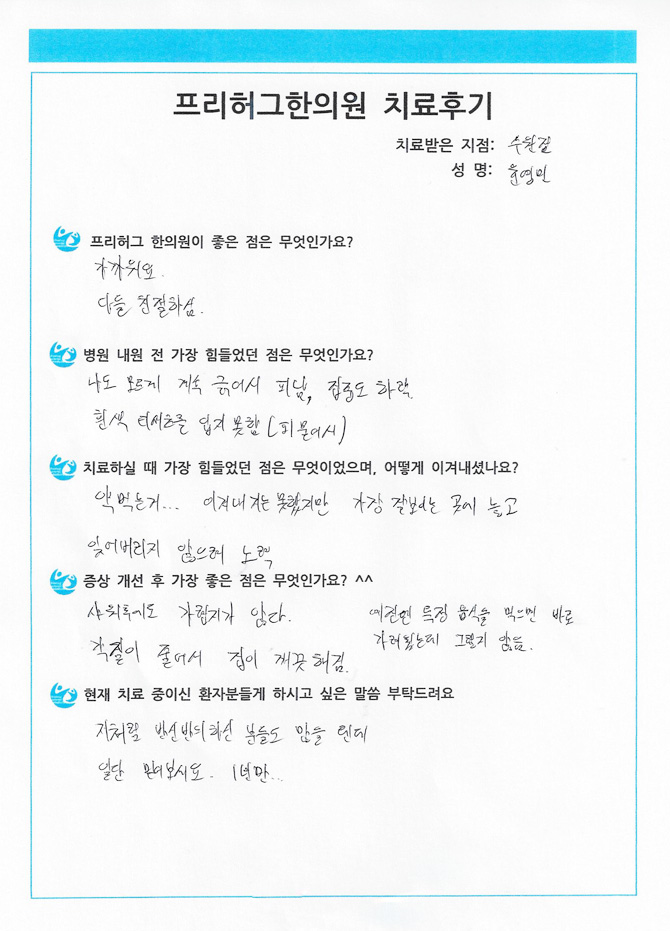 프리허그한의원 치료후기
치료받은 지점: 수원점
성 명: 윤영민
프리허그 한의원이 좋은 점은 무엇인가요?
가까워요.
다들 친절하심.
병원 내원 전 가장 힘들었던 점은 무엇인가요?
나도 모르게 계속 긁어서 피남, 집중도 하락
흰색 티셔츠를 입지 못함(피 묻어서)
치료하실 때 가장 힘들었던 점은 무엇이었으며, 어떻게 이겨내셨나요?
약먹는거... 이겨내지는 못했지만 가장 잘보이는 곳에 놓고
잊어버리지 않으려 노력
증상 개선 후 가장 좋은 점은 무엇인가요? ^^
샤워후에도 가렵지가 않다.
각질이 줄어서 집이 깨끗해짐.
예전엔 특정 음식을 먹으면 바로
가려웠는데 그렇지 않음.
현재 치료 중이신 환자분들게 하시고 싶은 말씀 부탁드려요
저처럼 반신반의하신 분들도 많을 텐데
일단 믿어보시오. 1년만...